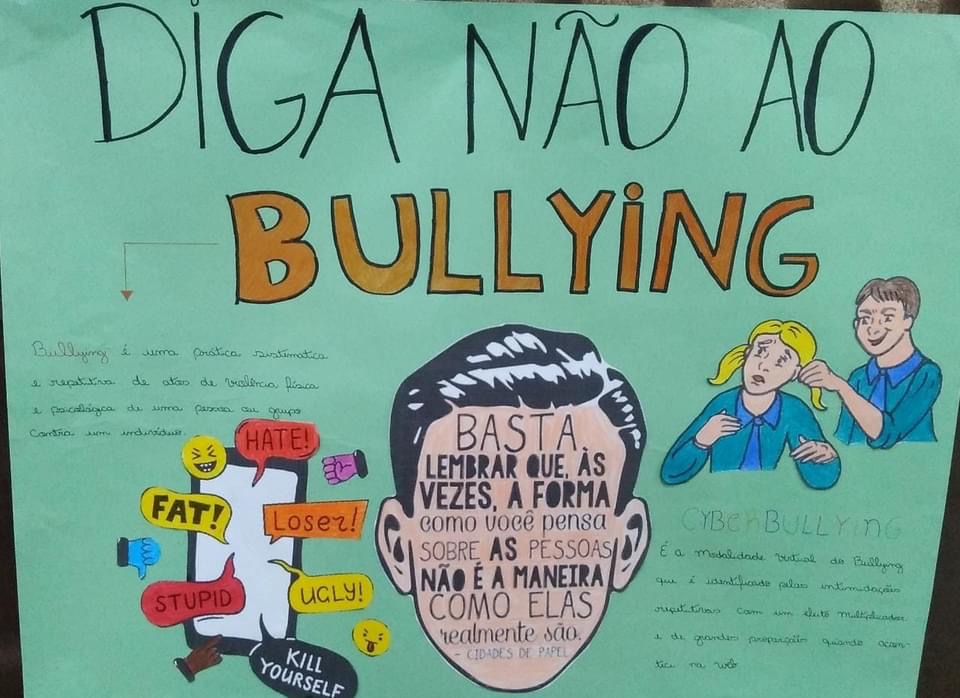 DIGA NÃO AO
BULLYING
Bullying é uma prática sistemática
e repetitiva de atos de violência física
e psicológica de uma pessoa ou grupo
contra um indivíduo.
HATE!
FAT!
Loser!
STUPID
UGLY!
KILL
YOURSELF
BASTA
LEMBRAR QUE, ÀS
VEZES, A FORMA
como você pensa
SOBRE AS PESSOAS
NÃO É A MANEIRA
COMO ELAS
realmente são.
- CIDADES DE PAPEL
CYBERBULLYING
É a modalidade virtual do Bullying
que é identificado pelas intimidações
repetitivas com um efeito multiplicador
e de grandes proporções quando acon-
tece na web